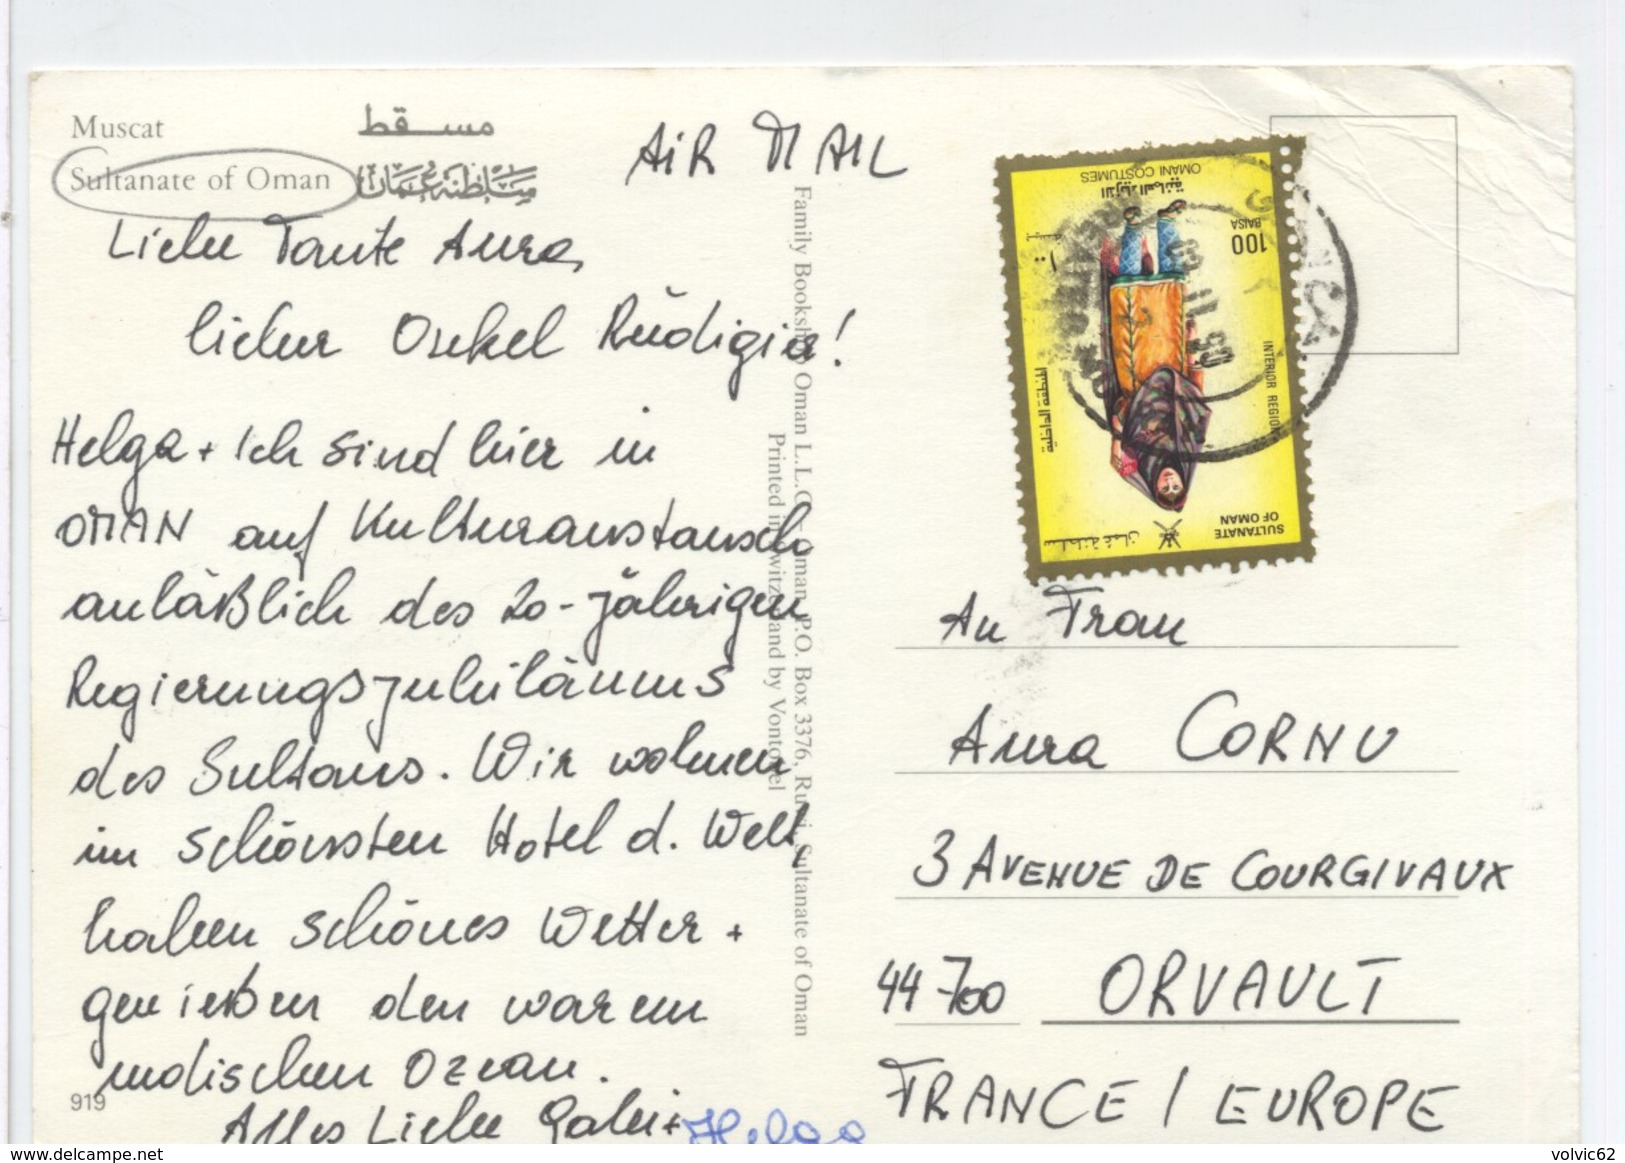 Muscat
مسقط
Sultanate of Oman
سلطنة عمان
AIR MAIL
Liebe Tante Aura,
lieber Onkel Rüdigier!
Helga + Ich sind hier in
OMAN auf Kulturaustausch
anläßlich des 20-jährigen
Regierungsjubiläums
des Sultans. Wir wohnen
im schönsten Hotel d. Welt,
haben schönes Wetter +
genießen den warem
indischen Ozean.
Alles Liebe Gabi +
Helga
919
Family Bookshop Oman L.L.C. Oman P.O. Box 3376, Ruwi, Sultanate of Oman
Printed in Switzerland by Vontobel
OMANI COSTUMES
الأزياء العمانية
100
BAISA
١٠٠
بيسة
INTERIOR REGION
المنطقة الداخلية
SULTANATE
OF OMAN
سلطنة عمان
An Frau
Aura CORNU
3 AVENUE DE COURGIVAUX
44-700 ORVAULT
FRANCE / EUROPE
www.delcampe.net
volvic62